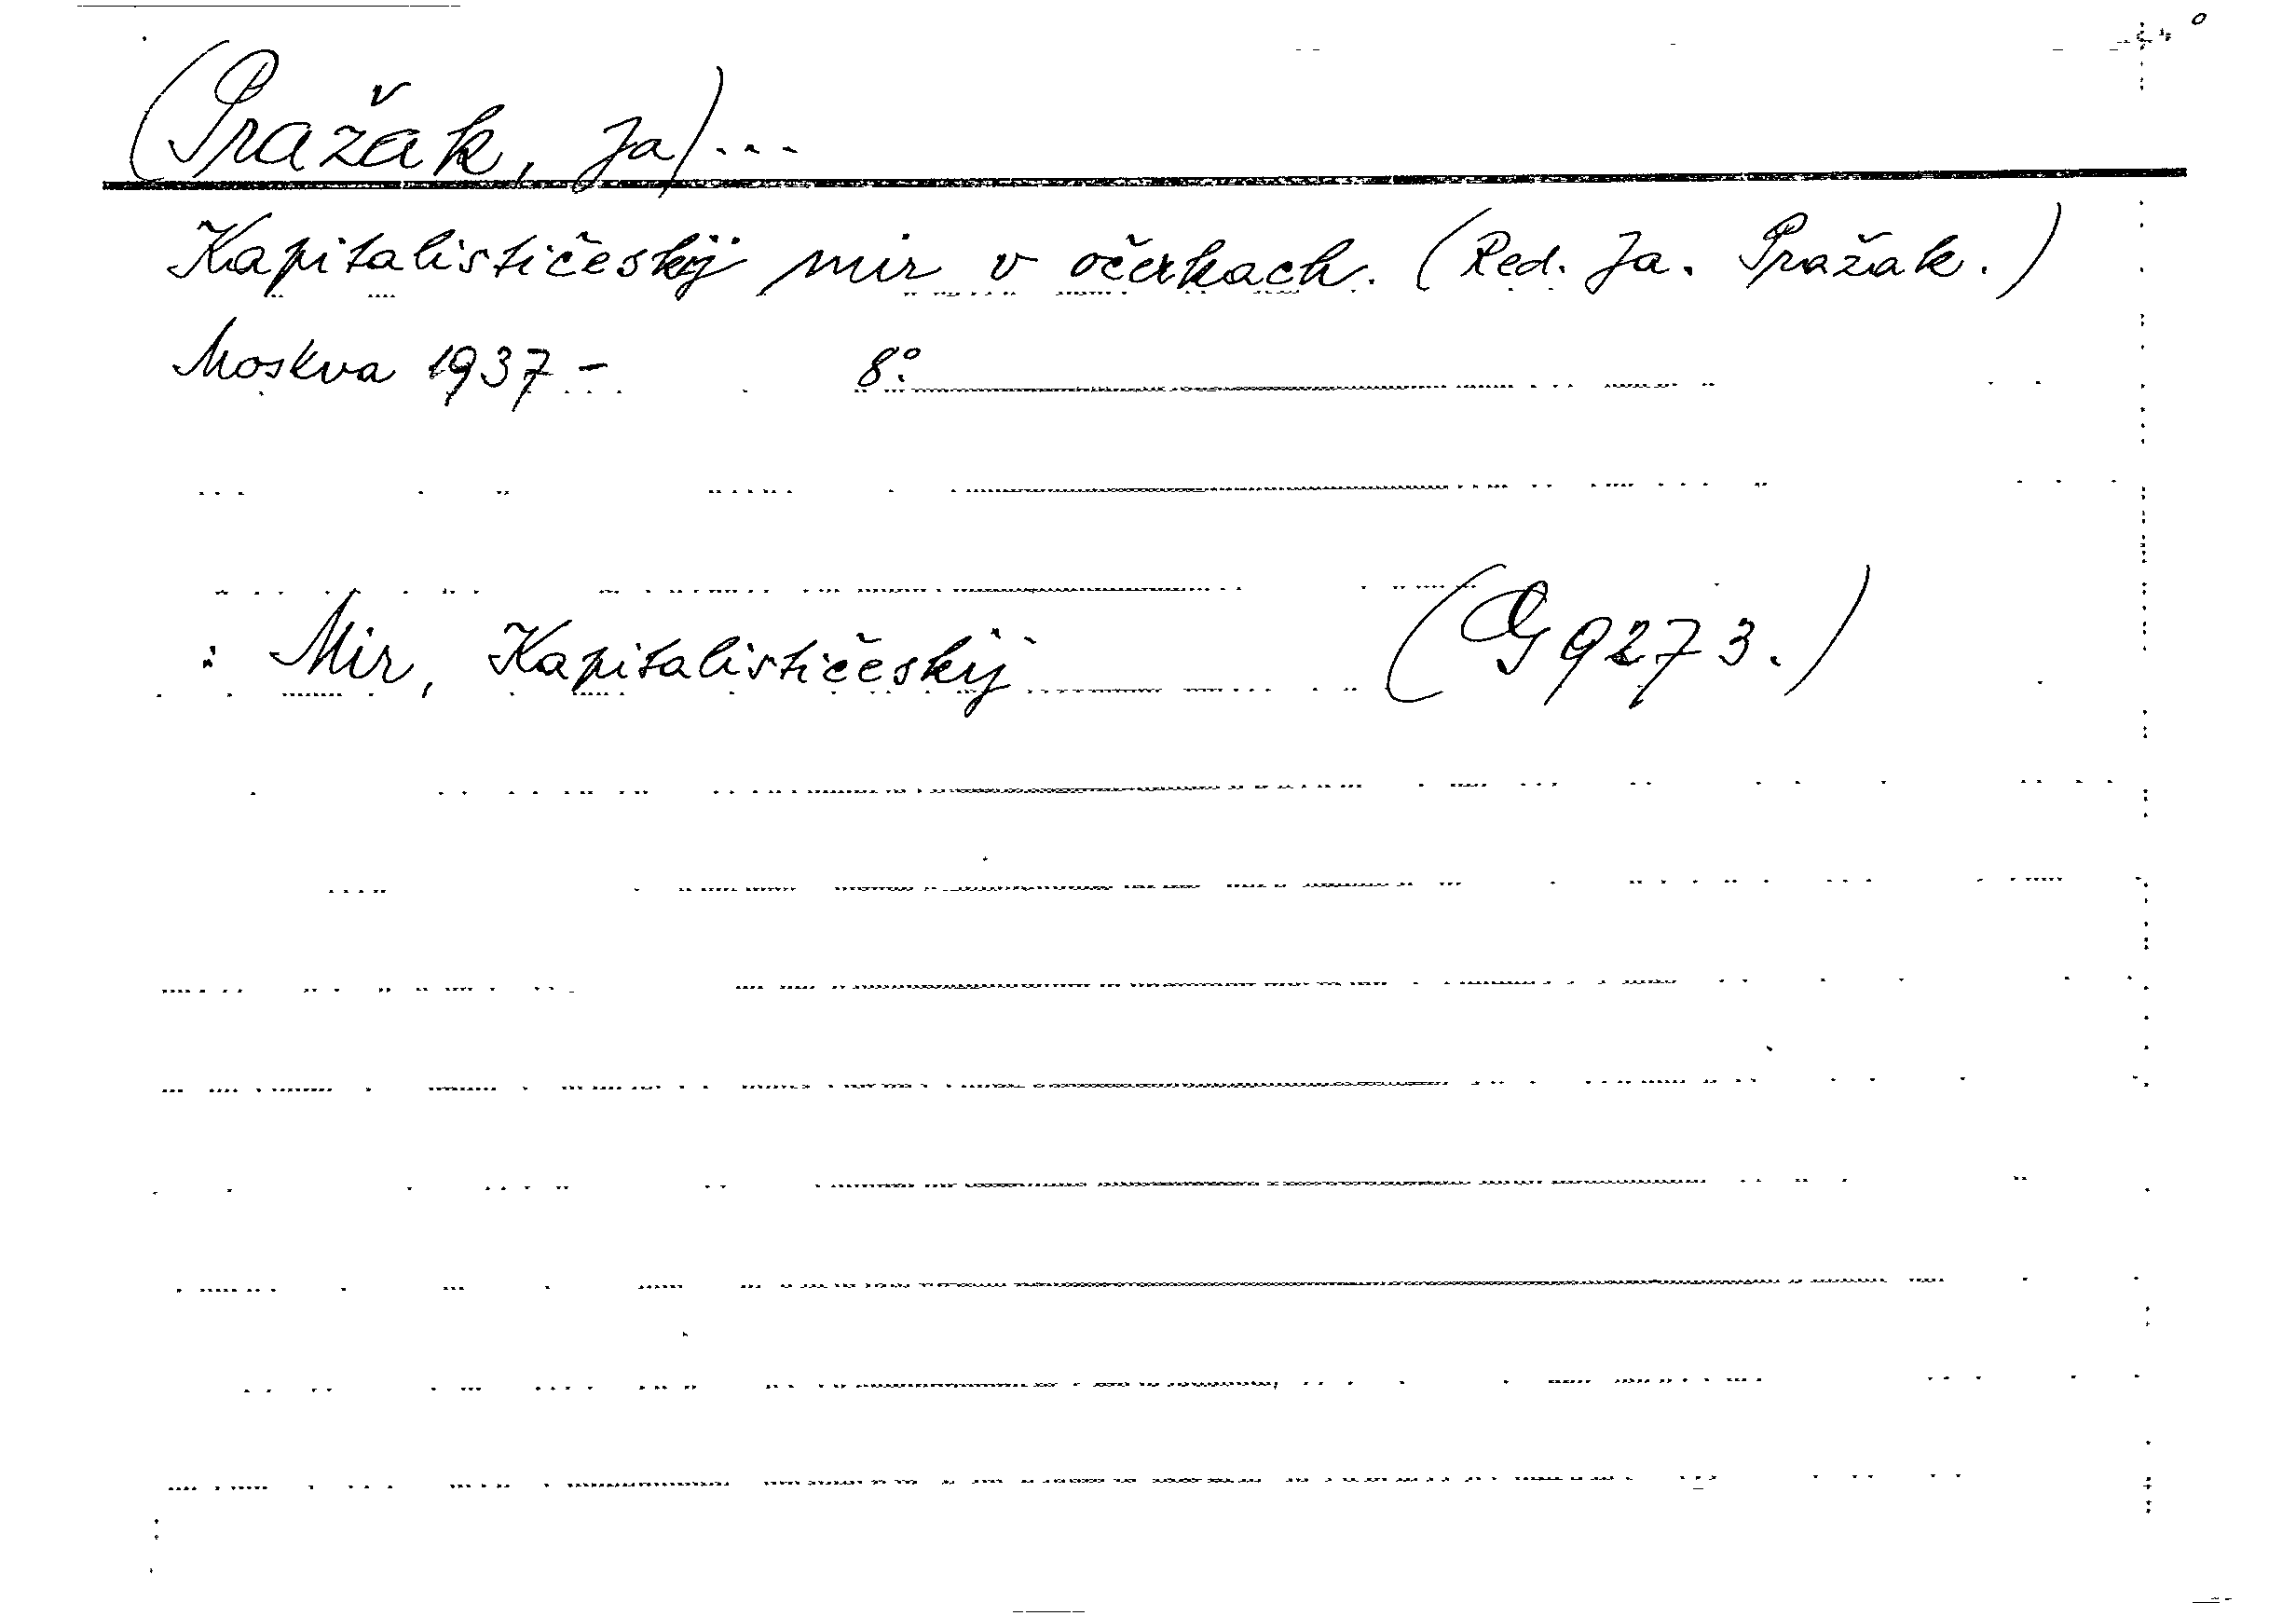 (Pražak, Ja)...
Kapitalističeskij mir v očerkach. (Red. Ja. Pražak.)
Moskva 1937 - 8°.
: Mir, Kapitalističeskij (G 9273.)